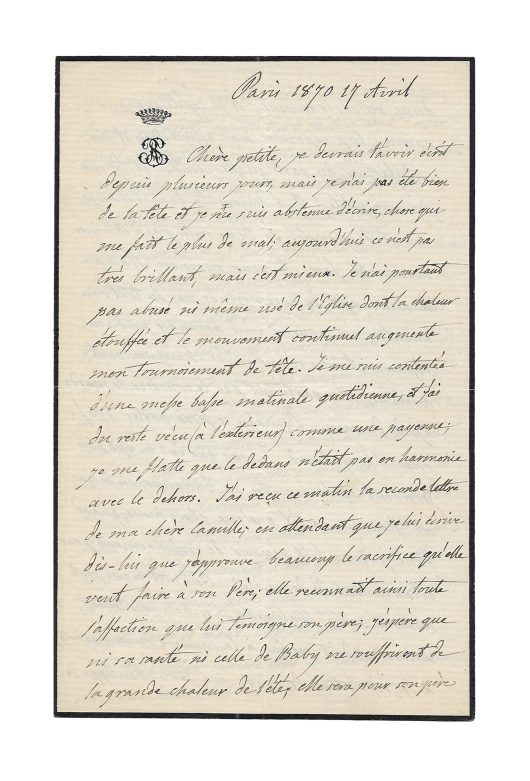 Paris 1870 17 Avril
Chère petite, je devrais t'avoir écrit
depuis plusieurs jours, mais je n'ai pas été bien
de la tête et je me suis abstenue d'écrire, chose qui
me fait le plus de mal; aujourd'hui ce n'est pas
très brillant, mais c'est mieux. Je n'ai pourtant
pas abusé ni même usé de l'Eglise dont la chaleur
étouffée et le mouvement continuel augmente
mon tournoiement de tête. Je me suis contentée
d'une messe basse matinale quotidienne, et j'ai
du reste vécu (à l'extérieur) comme une payenne;
je me flatte que le dedans n'était pas en harmonie
avec le dehors. J'ai reçu ce matin la seconde lettre
de ma chère Camille; en attendant que je lui écrive
dis-lui que j'approuve beaucoup le sacrifice qu'elle
veut faire à son Père; elle reconnait ainsi toute
l'affection que lui témoigne son père; j'éspère que
ni sa santé ni celle de Baby ne souffriront de
la grande chaleur de l'été; elle sera pour son père